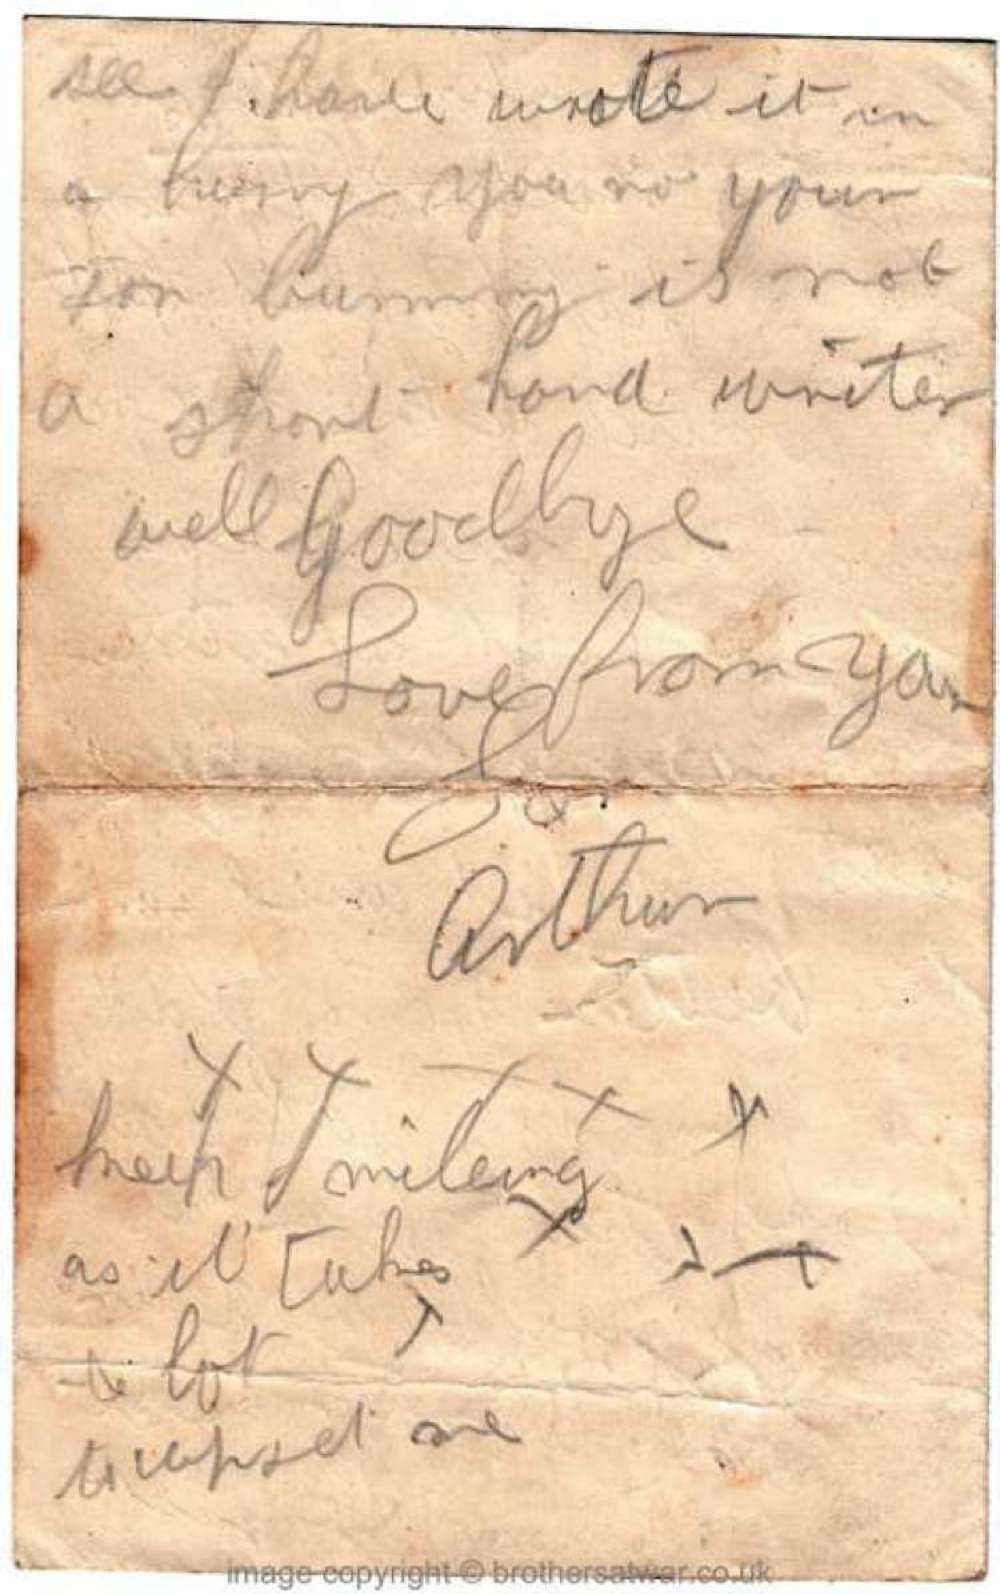 see I have wrote it in
a hurry you no your
son bunny is not
a short hand writer
well Goodbye
Love from your
Son
Arthur
keep smileing
as it takes
a lot
to upset me
image copyright © brothersatwar.co.uk